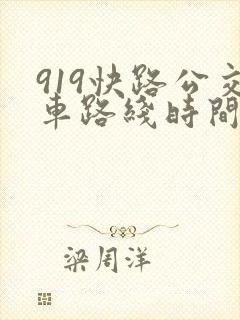 919快路公交
車路綫時間
梁周洋